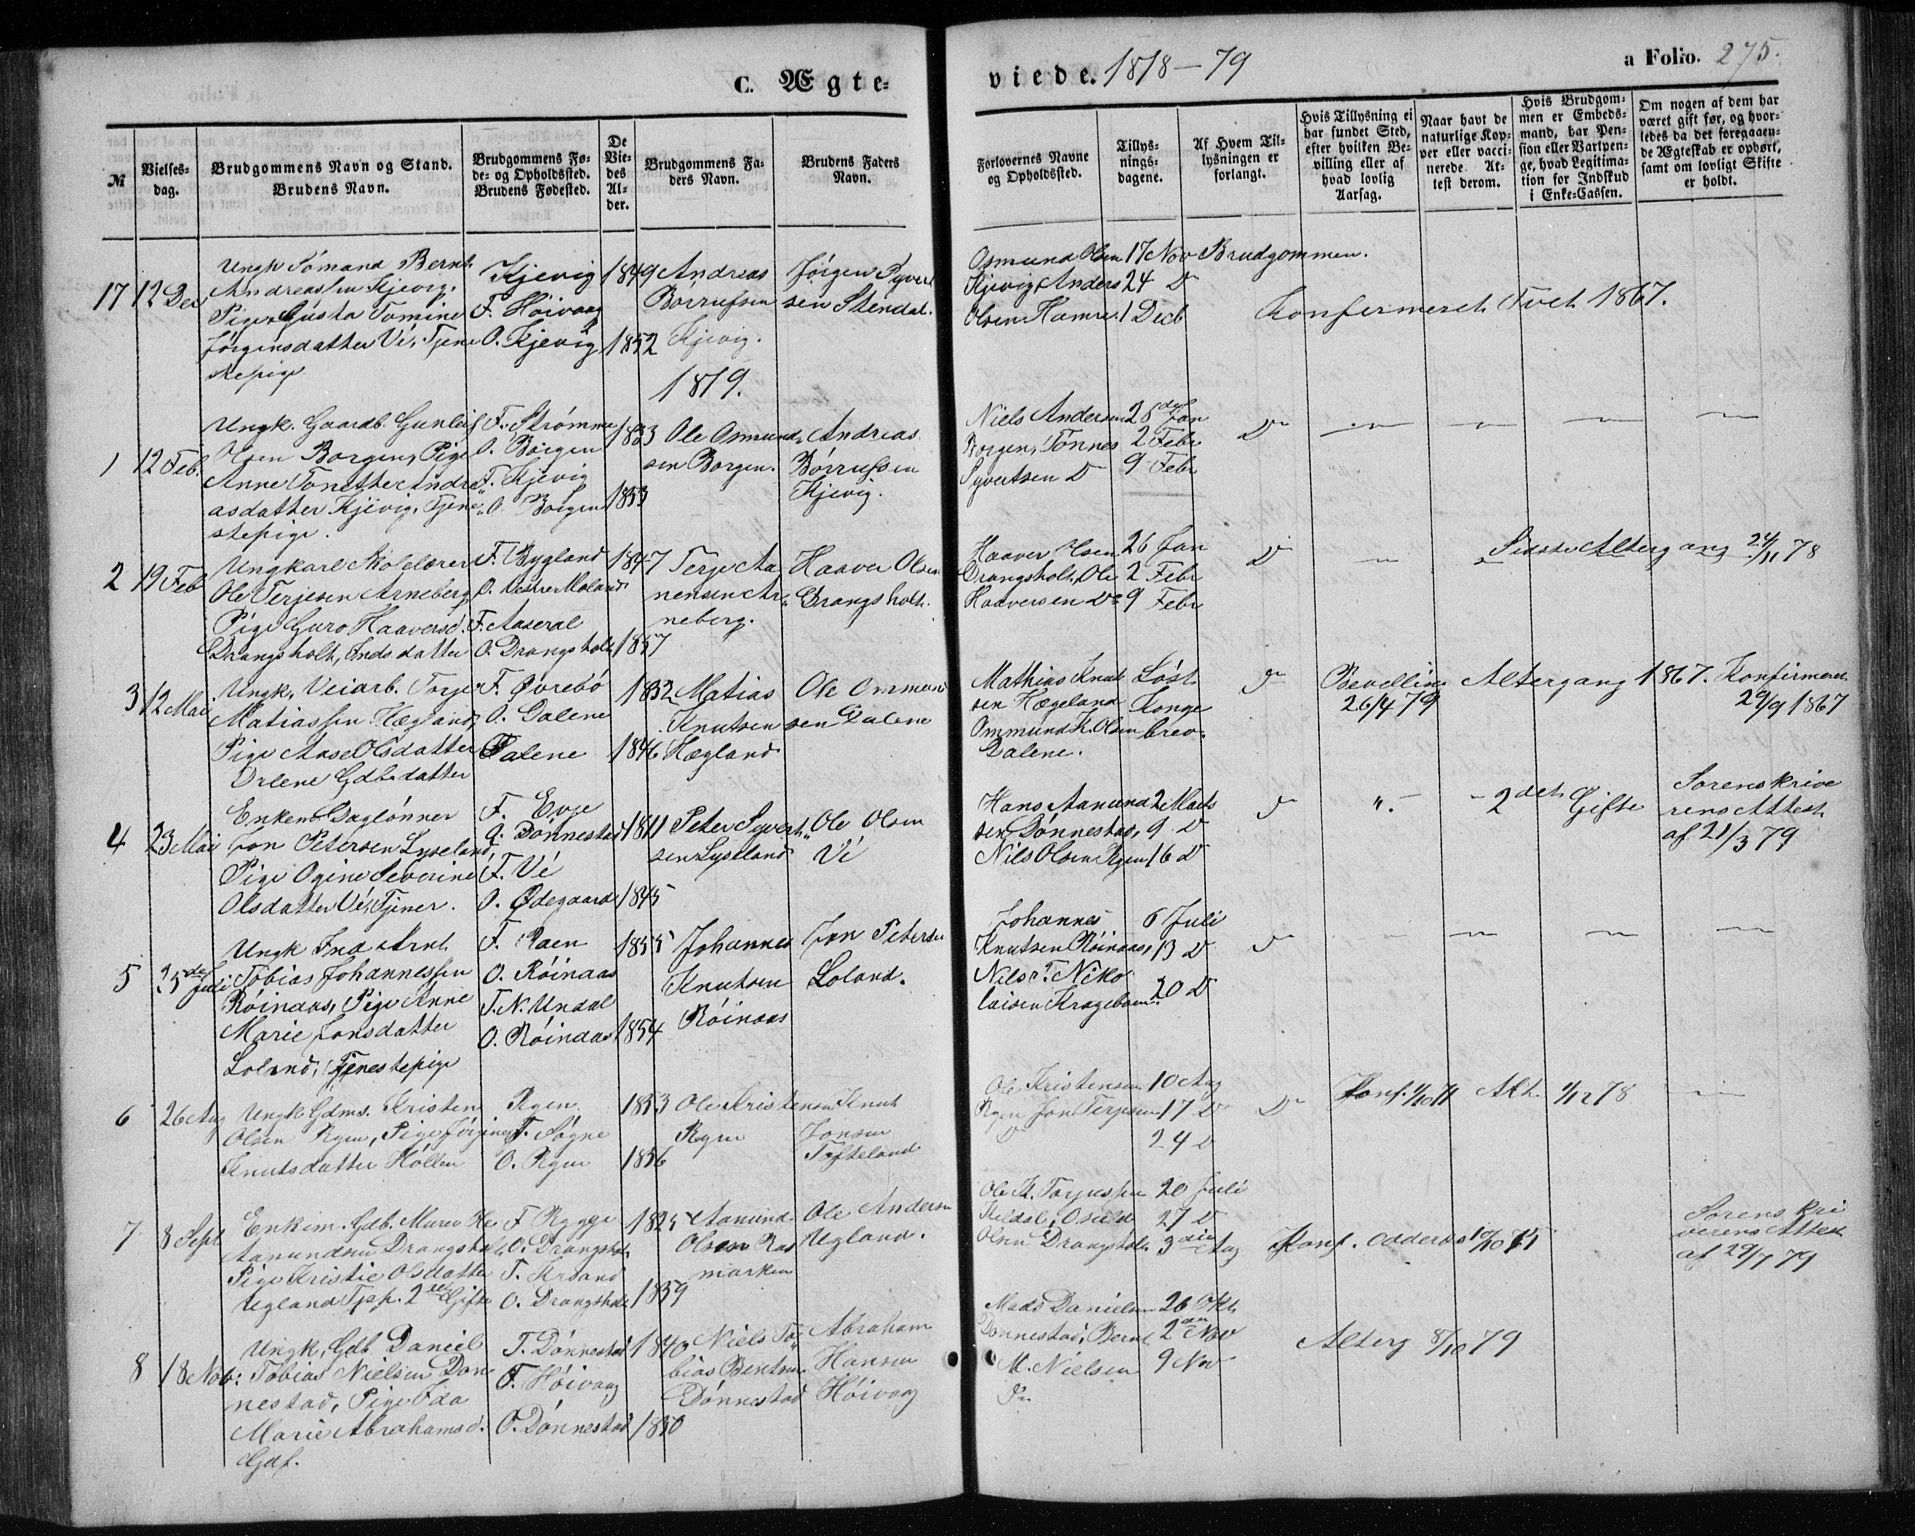 C. Ægte-
viede. 1878-79
a Folio. 275.
№
Vielses-
dag.
Brudgommens Navn og Stand.
Brudens Navn.
Brudgommens Fø-
de- og Opholdssted.
Brudens Fødested.
De
Vie-
des
Al-
der.
Brudgommens Fa-
ders Navn.
Brudens Faders
Navn.
Forlovernes Navne
og Opholdssted.
Tillys-
nings-
dagene.
Af Hvem Til-
lysningen er
forlangt.
Hvis Tillysning ei
har fundet Sted,
efter hvilken Be-
villing eller af
hvad lovlig
Aarsag.
Naar havt de
naturlige Kop-
per eller vacci-
nerede. At-
test derom.
Hvis Brudgom-
men er Embeds-
mand, har Pen-
sion eller Vartpen-
ge, hvad Legitima-
tion for Indskud
i Enke-Cassen.
Om nogen af dem har
været gift før, og hvor-
ledes da det foregaaen-
de Ægteskab er ophørt,
samt om lovligt Skifte
er holdt.
17
12 Dec
Ungk Sömand Bernt
Andreassen Kjevig.
Pige Gusta Tomine
Jörgensdatter Vé, Tjene
stepige
Kjevig
F. Höivaag
O. Kjevig
1849
1852
Andreas
Börrufsen
Kjevig.
Jörgen Syvert
sen Stendal.
Osmund Olsen
Kjevig Anders
Olsen Hamre
17 Nov
24 D
1 Decb
Brudgommen.
Konfirmeret Tvet 1867.
1879.
1
12 Feb.
Ungk. Gaardb. Gunleif
Olsen Borgen, Pige
Anne Tonette Andre
asdatter Kjevig, Tjene
stepige.
F. Strømme
O. Borgen
F. Kjevig
O. Borgen
1853
1853
Ole Osmund
sen Borgen.
Andreas
Børrufsen
Kjevig.
Niels Andersen
Borgen, Tönnes
Syvertsen D
26 Jan
2 Febr
9 Febr
Do
2
19 Feb
Ungkarl Skolelærer
Ole Terjesen Arneberg
Pige Guro Haaversd.
Drangsholt, Indsdatter
F. Bygland
O. Vestre Moland
F. Aaseral
O. Drangsholt
1847
1857
Terje Aa
nensen Ar
neberg.
Haaver Olsen
Drangsholt.
Haaver Olsen
Drangsholt, Ole
Haaversen Do
26 Jan
2 Febr
9 Febr
D
Sidste Altergang 24/11 78
3
12 Mai
Ungk, Veiarb. Torjer
Matiassen Hægland,
Pige Aasel Olsdatter
Drlene Gdb datter
F. Øvrebö
O. Dalene
Dalene
1832
1846
Matias
Knutsen
Hægland
Ole Ommund
sen Dalene
Mathias Knut
sen Hægeland
Ommund K. Olsen
Dalene.
Løst
Konge
brev.
Do
Bevelling
26/4 79
Altergang 1867. Konfirmeret
29/9 1867
4
23 Mai
Enkem Daglönner
Jon Petersen Lyseland,
Pige Ogine Severine
Olsdatter Vé, Tjener.
F. Evje
O. Dönnestad
F. Vé
O. Ødegaard
1811
1845
Peter Syvert
sen Lyseland
Ole Olsen
Vé
Hans Aanund
sen Dönnestad,
Nils Olsen Rgen
2 Marts
9 D
16 D
Do
2det Gifte
Sorenskrive
rens Attest
af 21/3 79
5
25de Juli
Ungk Ind Arnt
Tobias Johannessen
Röinaas, Pige Anne
Marie Jonsdatter
Loland, Tjenestepige
F. Raen
O. Röinaas
F. N. Undal
O. Röinaas
1855
1854
Johannes
Knutsen
Röinaas
Jon Petersen
Loland.
Johannes
Knutsen Röinaas,
Nils T. Niko
laisen Krageboen
6 Juli
13 D
20 D
Do
6
26 Aug
Ungk Gdms. Kristen
Olsen Rgen, Pige Jörgine
Knutsdatter Höllen
Rgen
F. Sögne
O. Rgen
1853
1856
Ole Kristensen
Rgen
Knut
Jonsen
Tofteland
Ole Kristensen
Rgen Jon Terjesen
D
10 Aug
17 D
24 D
Do
Konf. 1/10 71
Alt. 1/12 78
7
8 Sept
Enkem. Gdb. Murer He
Aanundsen Drangsholt,
Pige Kristie Olsdatter
Ugland Tpp. 2det Gifte
F. Rygge
O. Drangsholt
F. Krsand
O. Drangsholt
1825
1859
Aanund
Olsen Ros
marken
Ole Andersen
Ugland.
Ole K. Torjussen
Kildal, Osuld
Olsen Drangsholt
20 Juli
27 D
3die Aug
Konf. Oddernes 10/10 75
Sorenskri
verens Attest
af 29/7 79
8
18 Nov:
Ungk, Gdb Daniel
Tobias Nielsen Dön
nestad, Pige Ida
Marie Abrahamsd.
Gdf.
F. Dönnestad
F. Höivaag
O. Dönnestad
1840
1850
Niels To
bias Berntsen
Dönnestad
Abraham
Hansen
Höivaag
Mads Danielsen
Dönnestad, Bernt
M. Nielsen
Do
26 Okt.
2den Nov
9 Nov
Alterg 8/10 79